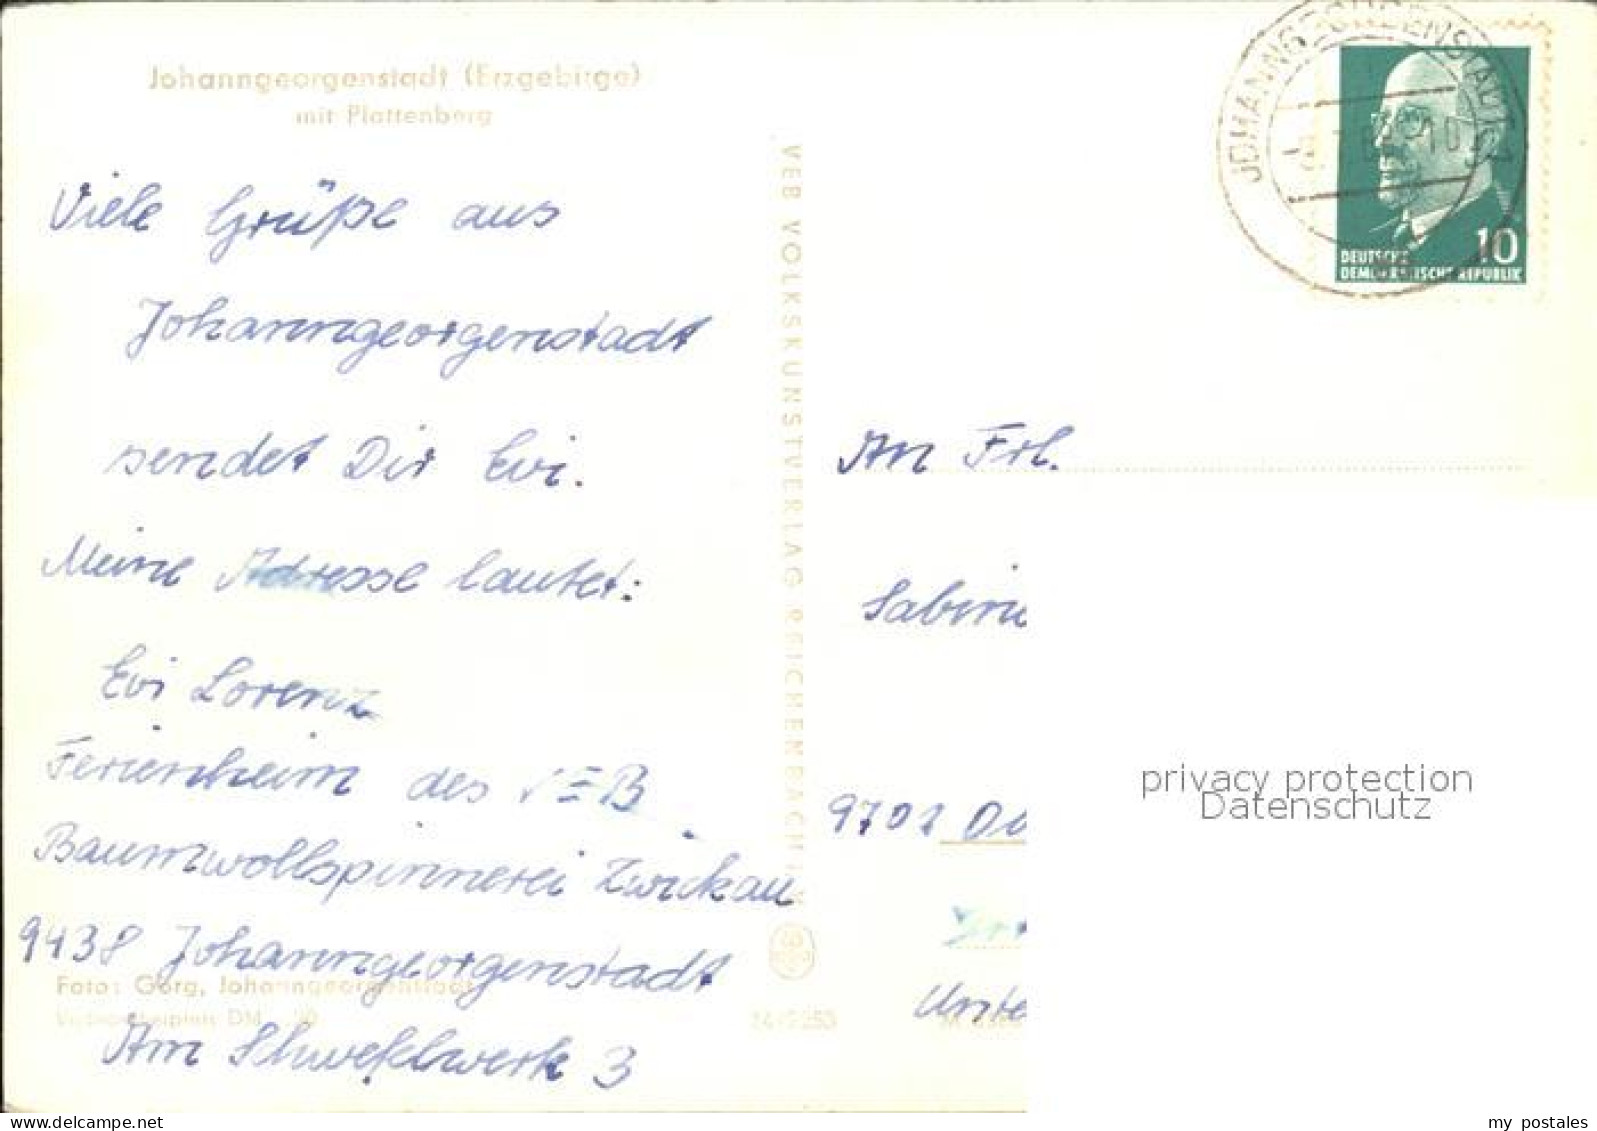 Johanngeorgenstadt (Erzgebirge)
mit Plattenberg
Viele Grüße aus
Johanngeorgenstadt
sendet Dir Evi.
Meine Adresse lautet:
Evi Lorenz
Ferienheim des VEB
Baumwollspinnerei Zwickau
9438 Johanngeorgenstadt
Am Schwefelwerk 3
Foto: Görg, Johanngeorgenstadt
VEB VOLKSKUNSTVERLAG REICHENBACH
JOHANNGEORGENSTADT
DEUTSCHE
DEMOKRATISCHE REPUBLIK
10
An Frl.
Sabin
Unte
privacy protection
Datenschutz
my postales